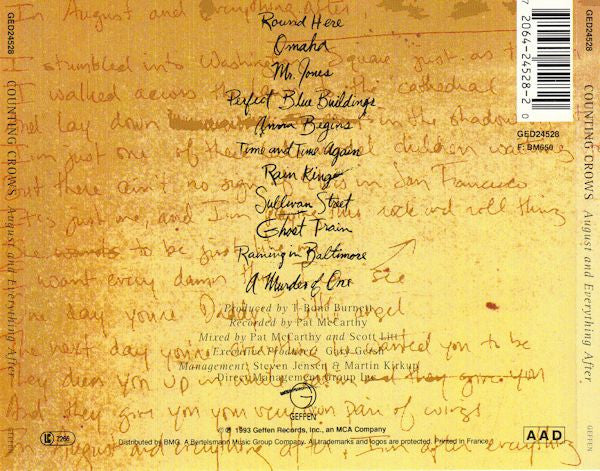 GED24528
COUNTING CROWS August and Everything After
GEFFEN
In August and everything after
I stumbled into Washington Square just as
I walked across the cathedral
lay down in the shadow
one of the children
but there ain't no sign of in San Francisco
just me and I'm this rock and roll thing
to be just
want every damn thing I see
One day you're Daddy's angel
next day you're wanted you to be
dress you up in and they give you
And they give you your very own pair of wings
August and everything after, I'm after everything
Round Here
Omaha
Mr. Jones
Perfect Blue Buildings
Anna Begins
Time and Time Again
Rain King
Sullivan Street
Ghost Train
Raining in Baltimore
A Murder of One
Produced by T-Bone Burnett
Recorded by Pat McCarthy
Mixed by Pat McCarthy and Scott Litt
Executive Producer Gary Gersh
Management: Steven Jensen & Martin Kirkup
Direct Management Group Inc
GEFFEN
℗ © 1993 Geffen Records, Inc., an MCA Company
Distributed by BMG. A Bertelsmann Music Group Company. All trademarks and logos are protected. Printed in France.
LC 7266
7 2064-24528-2 0
GED24528
F: BM650
AAD
GED24528
COUNTING CROWS August and Everything After
GEFFEN